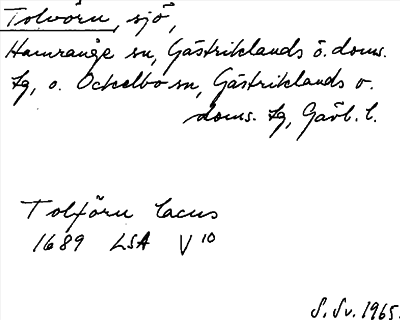 Tolvörn, sjö,
Hamrånge sn, Gästriklands ö. doms.
tg, o. Ockelbo sn, Gästriklands v.
doms. tg, Gävl. l.
Tolförn lacus
1689 LSA V 10
S. Sv. 1965.